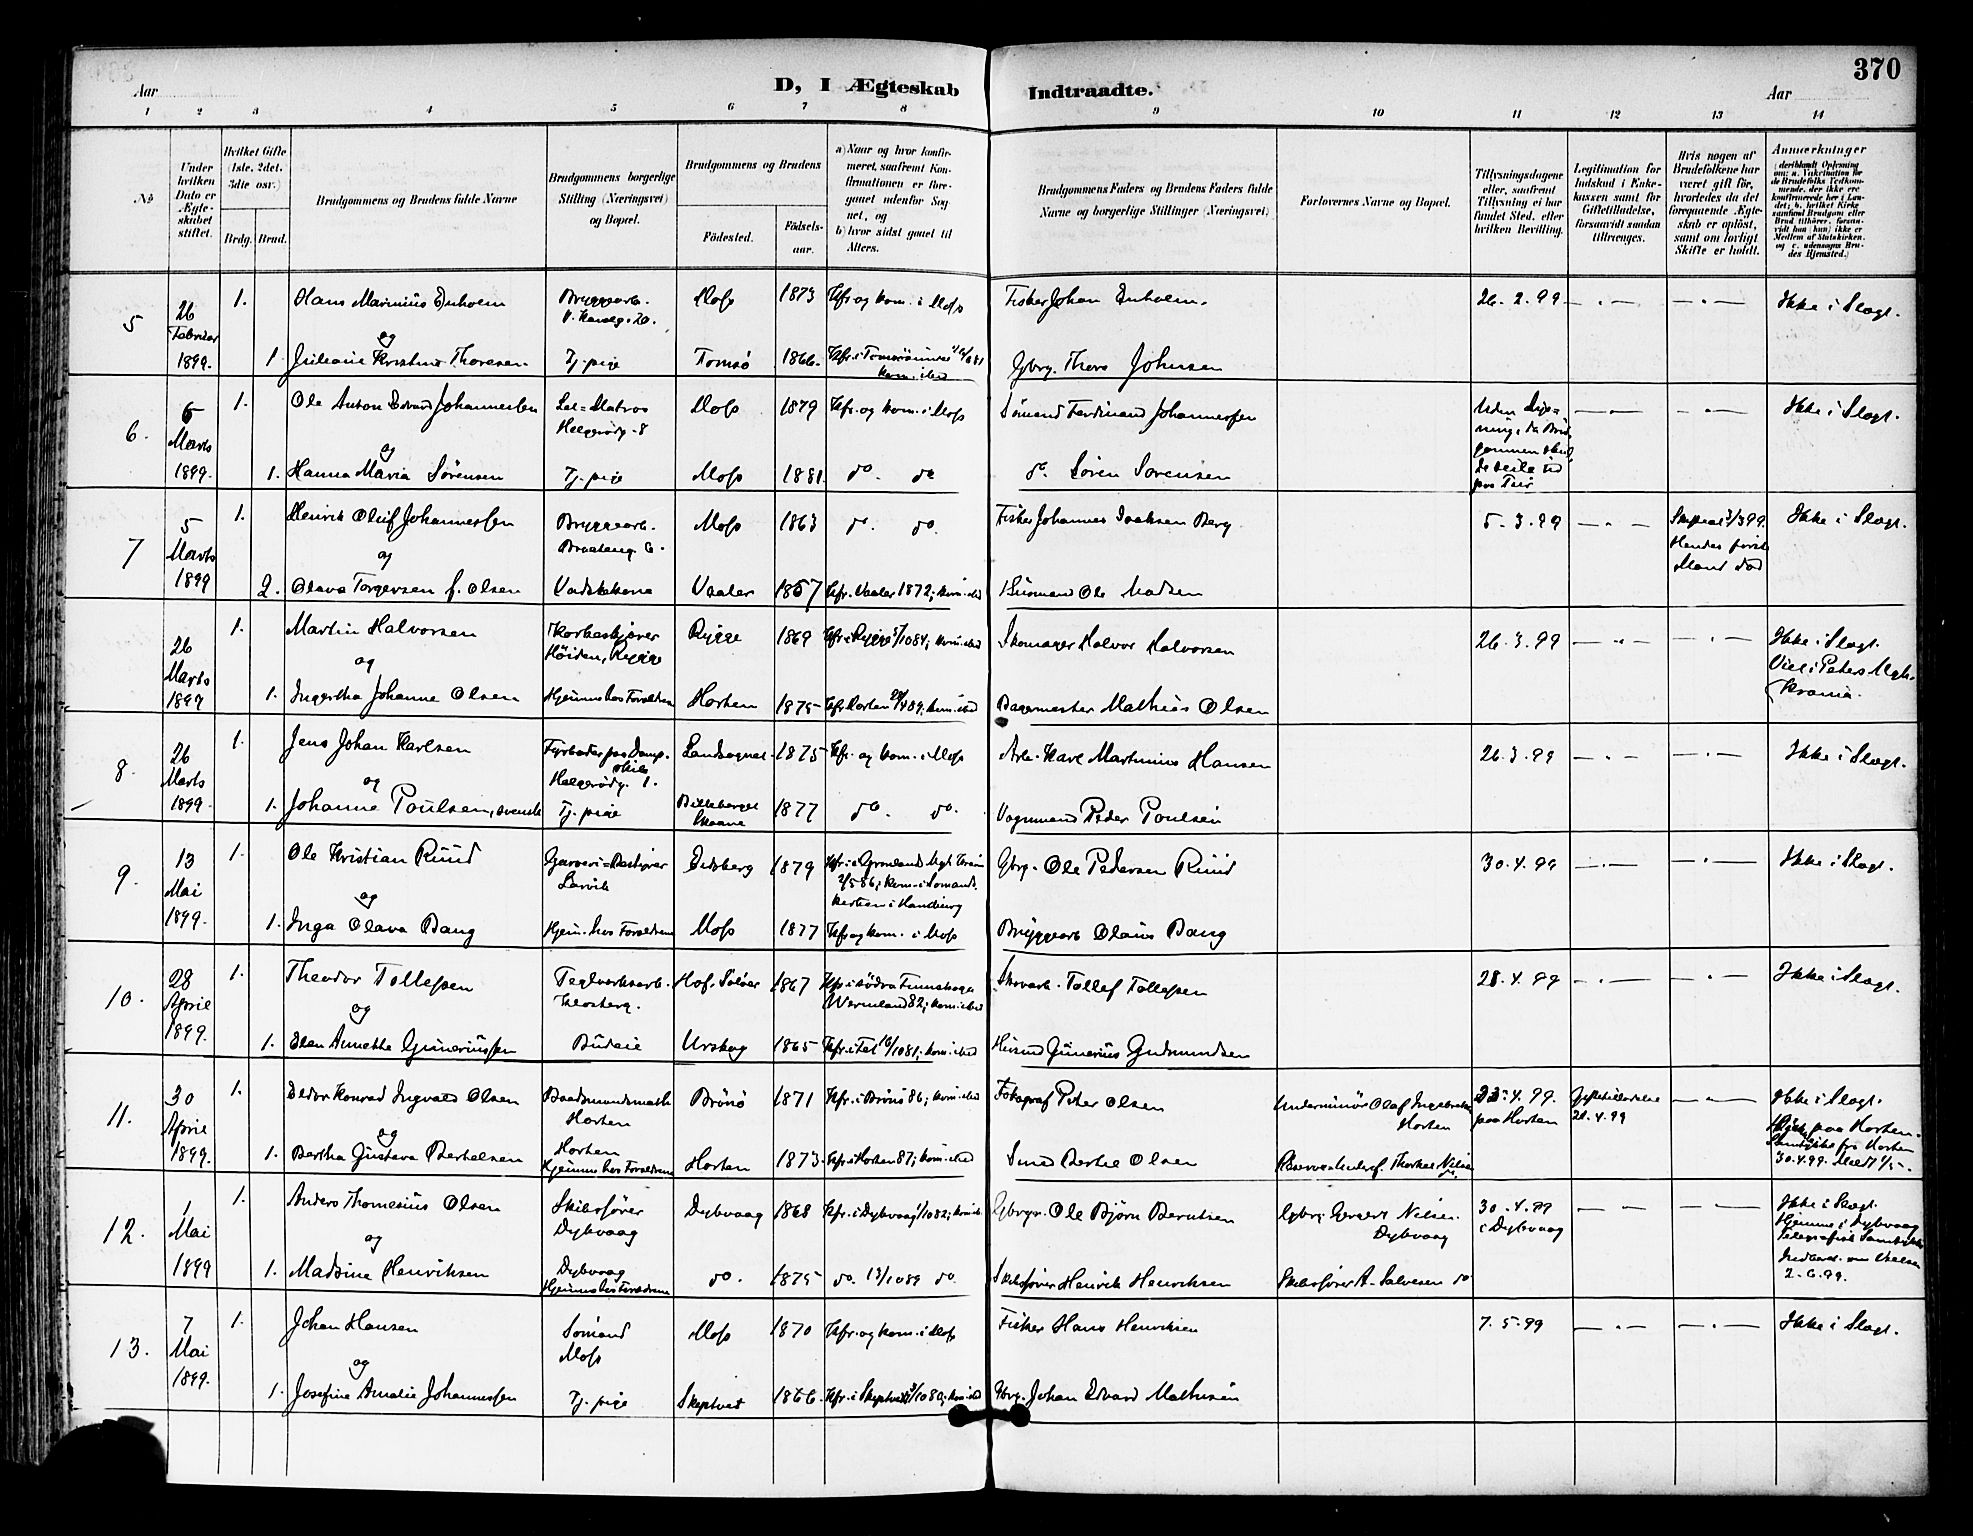 370
Aar
D, I Ægteskab Indtraadte.
Aar
1 2 3 4 5 6 7 8 9 10 11 12 13 14
No
Under hvilken Dato er Ægteskabet stiftet.
Hvilket Gifte (1ste, 2det, 3die osv.)
Brdg. Brud.
Brudgommens og Brudens fulde Navne
Brudgommens borgerlige Stilling (Næringsvei) og Bopæl.
Brudgommens og Brudens
Fødested.
Fødselsaar.
a) Naar og hvor konfirmeret, saafremt Konfirmationen er foregaaet udenfor Sognet, og
b) hvor sidst gaaet til Alters.
Brudgommens Faders og Brudens Faders fulde Navne og borgerlige Stillinger (Næringsvei)
Forlovernes Navne og Bopæl.
Tillysningsdagene eller, saafremt Tillysning ei har fundet Sted, efter hvilken Bevilling.
Legitimation for Indskud i Enkekassen samt for Giftetilladelse, forsaavidt saadan tiltrænges.
Hvis nogen af Brudefolkene har været gift før, hvorledes da det foregaaende Ægteskab er opløst, samt om lovligt Skifte er holdt.
Anmærkninger
5 26 Februar 1899. 1. Hans Marinius Enholm Bryggearb. Moss 1873 Kfr. og kom. i Moss Fisker Johan Enholm. 26.2.99 Ikke i Slægt.
og
1. Juliane Kristine Thoresen Tj. pige Tomsø 1866 kom. ibid Gbrg. Thore Johnsen
6. 6 Marts 1899. 1. Ole Anton Edvard Johannessen Matros Helgerødg. 8 Moss 1879 Kfr. og kom. i Moss Sømand Ferdinand Johannessen Uden Lysning, da Brudgommen skulde Ikke i Slægt.
og
1. Hanna Maria Sørensen Tj. pige Moss 1881 do. do do. Søren Sørensen
7 5 Marts 1899 1. Henrik Oluf Johannessen Bryggearb. Moss 1863 do. do. Fisker Johannes Isaksen Berg 5-3.99 Hendes første Mand død Ikke i Slægt.
og
2. Olava Torgersen f. Olsen Vadskekone Vaaler 1857 Kfr. Vaaler 1872; kom. ibid Husmand Ole Madsen
26 Marts 1899 1. Martin Halvorsen Høiden, Rygge Rygge 1869 Kfr. i Rygge kom. ibid Skomager Halvor Halvorsen 26.3.99 Ikke i Slægt.
Viel. i Peters Mgh. Krania.
og
1. Ingertha Johanne Olsen Hjemme hos Forældrene Horten 1875 Kfr. Horten kom. ibid Bagermester Mathias Olsen
8. 26 Marts 1899. 1. Jens Johan Karlsen Fyrbøder paa Dampskib Helgerødg. 1. Landsognet 1875 Kfr. og kom. i Moss Arb. Karl Martinius Hansen 26.3.99 Ikke i Slægt.
og
1. Johanne Poulsen, svensk Tj. pige Billeberga Skaane 1877 do. do. Vognmand Peder Poulsen
9. 13 Mai 1899. 1. Ole Kristian Ruud Garveri-Bestyrer Larvik Eidsberg 1879 Kfr. i Grønlands Mgh. kom. i Sømandskirken i Hamburg Gbrg. Ole Pedersen Ruud 30.4.99 Ikke i Slægt.
og
1. Inga Olava Bang Hjem. hos Forældrene Moss 1877 Kfr. og kom. i Moss Bryggearb Olaus Bang
10. 28 April 1899. 1. Theodor Tollefsen Teglverksarb. Hof, Solør 1867 Kfr. i södra Finnskoga Wermland 82; kom. ibid Skovarb. Tollef Tollefsen 28.4.99 Ikke i Slægt.
og
1. Elen Annette Guneriussen Budeie Urskog 1865 Kfr. i Fet 16/10 81; kom. ibid Husmd Gunerius Gudmundsen
11. 30 April 1899. 1. Konrad Ingvald Olsen Baadsmandsmath Horten Brønø 1871 Kfr. i Brønø 86; kom. ibid Fotograf Peter Olsen Underminør Olaf Horten 23.4.99. paa Horten Giftetilladelse 21.4.99 Ikke i Slægt.
paa Horten.
Samtykke fra Horten 30.4.99.
og
1. Bertha Gustava Bertelsen Horten Hjemme hos Forældrene Horten 1873 Kfr. i Horten 87; kom. ibid Smed Bertel Olsen Thorkel Nilsen
12. 1 Mai 1899 1. Anders Thomesius Olsen Skibsfører Dybvaag Dybvaag 1868 Kfr. i Dybvaag Gbrgr. Ole Bjørn Berntsen Gbrg. Nilsen Dybvaag 30.4.99 i Dybvaag Ikke i Slægt.
Hjemme i Dybvaag
Telegrafisk Samtykke
2.6.99.
og
1. Madsine Henriksen Dybvaag Hjemme hos Forældrene do. 1875 do. 13/10 89 do. Skibsfører Henrik Henriksen Skibsfører A. Salvesen do
13. 7 Mai 1899. 1. Johan Hansen Sømand Moss Moss 1870 Kfr. og kom. i Moss Fisker Hans Henriksen 7.5.99 Ikke i Slægt.
og
1. Josefine Amalie Johannessen Tj. pige Skeptvet 1866 Kfr. i Skeptvet kom. ibid Gbrg. Johan Edvard Mathisen